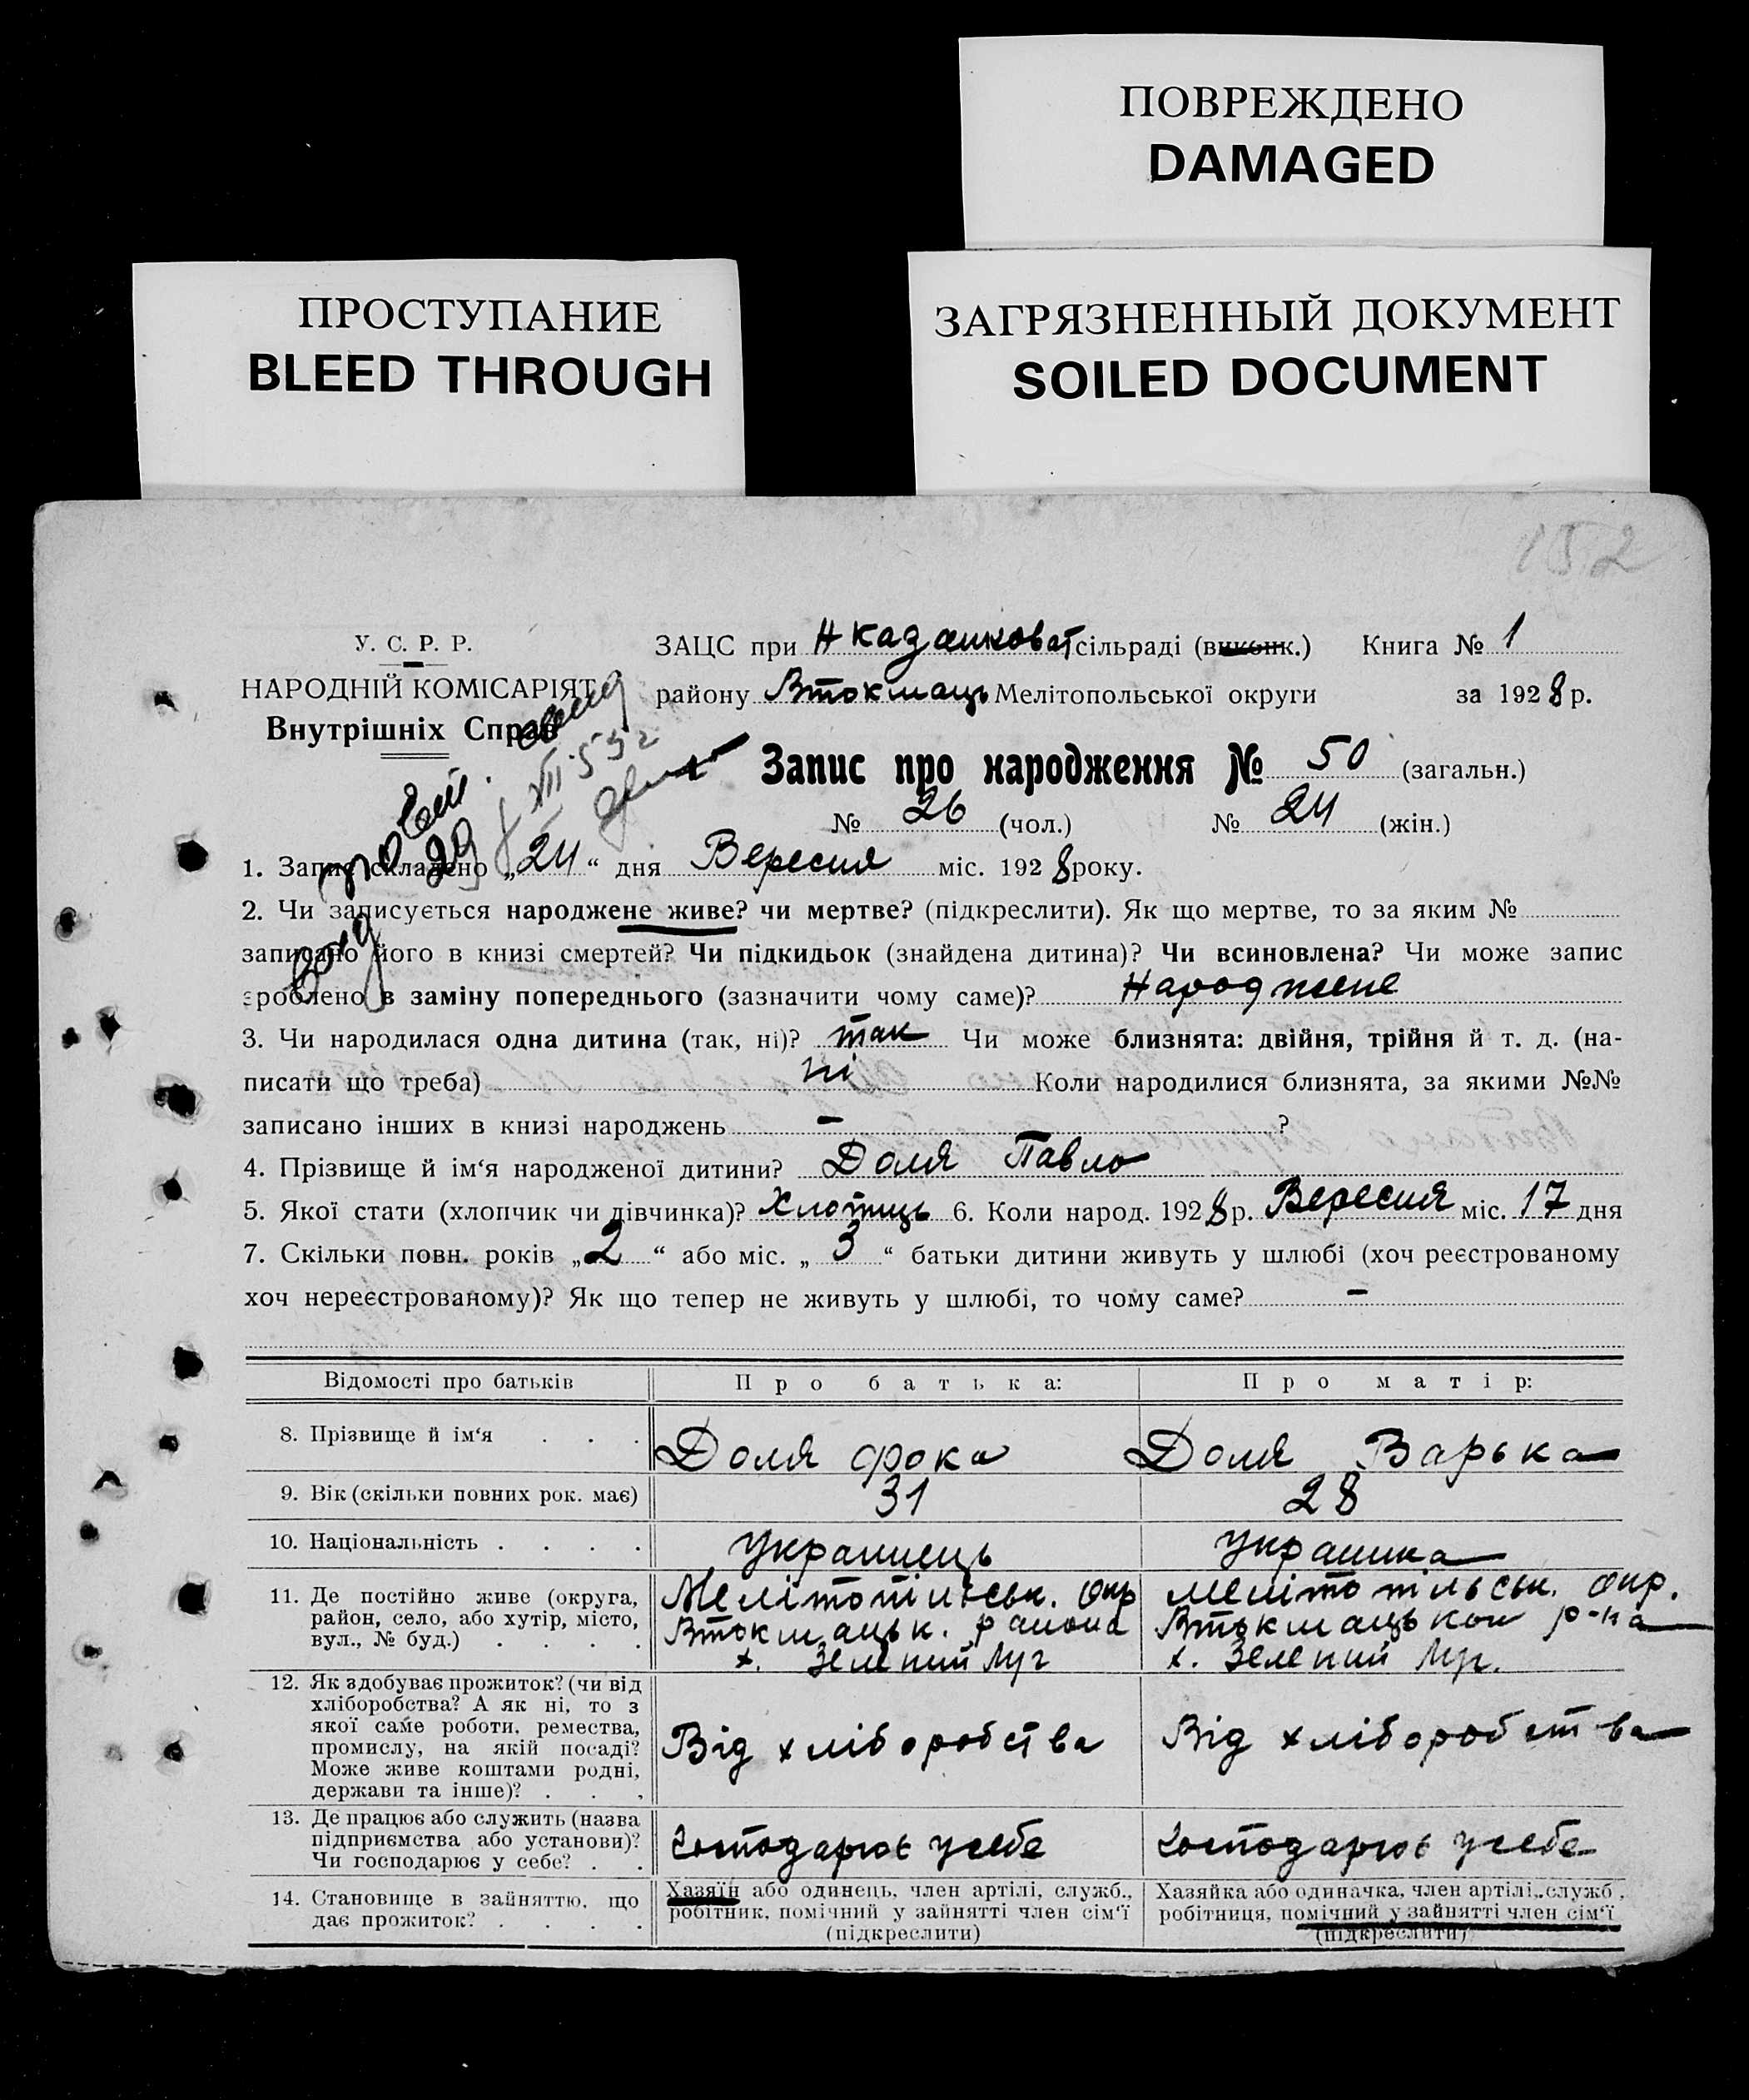 ПОВРЕЖДЕНО
DAMAGED
ПРОСТУПАНИЕ
BLEED THROUGH
ЗАГРЯЗНЕННЫЙ ДОКУМЕНТ
SOILED DOCUMENT
152
У. С. Р. Р.
НАРОДНІЙ КОМІСАРІЯТ
Внутрішніх Справ
ЗАЦС при Н Казанковат сільраді (виконк.) Книга № 1
району Втокмаць Мелітопольської округи за 1928 р.
Запис про народження № 50 (загальн.)
№ 26 (чол.) № 24 (жін.)
1. Запис складено „24“ дня Вересня міс. 1928 року.
2. Чи записується народжене живе? чи мертве? (підкреслити). Як що мертве, то за яким №
записано його в книзі смертей? Чи підкидьок (знайдена дитина)? Чи всиновлена? Чи може запис
зроблено в заміну попереднього (зазначити чому саме)? Народжене
3. Чи народилася одна дитина (так, ні)? так Чи може близнята: двійня, трійня й т. д. (на-
писати що треба) ні Коли народилися близнята, за якими №№
записано інших в книзі народжень – ?
4. Прізвище й ім‘я народженої дитини? Доля Павло
5. Якої стати (хлопчик чи дівчинка)? Хлопиць 6. Коли народ. 1928 р. Вересня міс. 17 дня
7. Скільки повн. років „2“ або міс. „3“ батьки дитини живуть у шлюбі (хоч реєстрованому
хоч нереєстрованому)? Як що тепер не живуть у шлюбі, то чому саме? –
Відомості про батьків Про батька: Про матір:
8. Прізвище й ім‘я . . . Доля Фока Доля Варька
9. Вік (скільки повних рок. має) 31 28
10. Національність . . . . Украинець Украинка
11. Де постійно живе (округа,
район, село, або хутір, місто,
вул., № буд.) . . . .
Мелітопільськ. Окр
Втокмацьк. района
х. Зелений Луг
Мелітопільськ. Окр.
Втокмацькои р-на
х. Зелений Луг.
12. Як здобуває прожиток? (чи від
хліборобства? А як ні, то з
якої саме роботи, ремества,
промислу, на якій посаді?
Може живе коштами родні,
держави та інше)? . . .
Від хліборобства
Від хліборобства
13. Де працює або служить (назва
підприємства або установи)?
Чи господарює у себе? . .
Господарює у себе
Господарює у себе
14. Становище в зайняттю, що
дає прожиток? . . . .
Хазяїн або одинець, член артілі, служб.,
робітник, помічний у зайнятті член сім‘ї
(підкреслити)
Хазяйка або одиначка, член артілі, служб.,
робітниця, помічний у зайнятті член сім‘ї
(підкреслити)